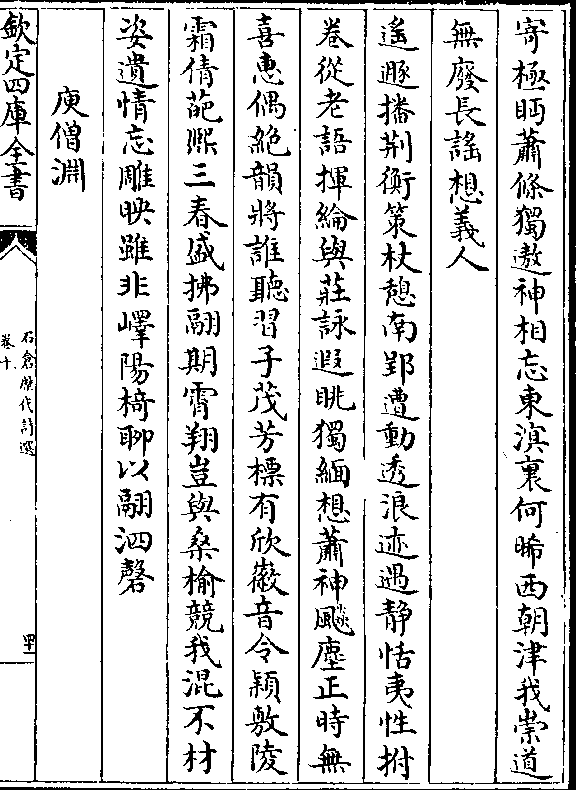 寄極眄蕭條獨遨神相忘東溟裏何晞西朝津我崇道
無廢長謠想義人
遙遯播荆衡策杖憩南郢遭動透浪迹遇静恬夷性拊
卷從老語揮綸與莊詠遐眺獨緬想蕭神飈塵正時無
喜惠偶絶韻將誰聽習子茂芳標有欣徽音令穎敷陵
霜倩葩熙三春盛拂翮期霄翔豈與桑榆競我混不材
姿遺情忘雕映雖非嶧陽椅聊以翮泗磬
庾僧淵
欽定四庫全書
石倉歷代詩選
卷十